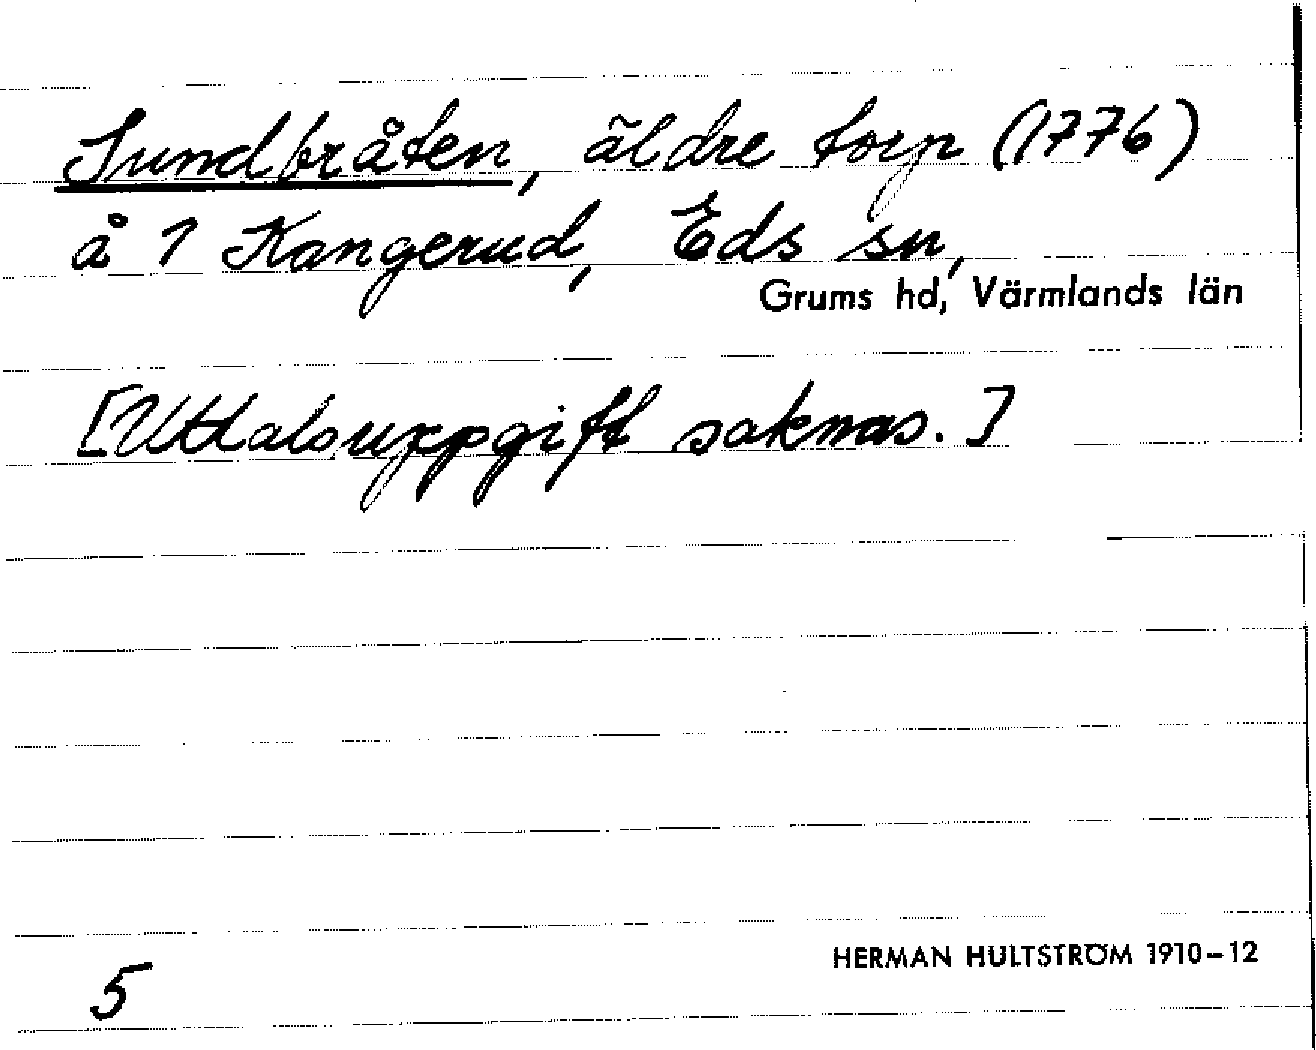 Sundbråten, äldre torp (1776)
å 1 Kangerud, Eds sn,
Grums hd, Värmlands län
[Uttalsuppgift saknas.]
HERMAN HULTSTRÖM 1910–12
5